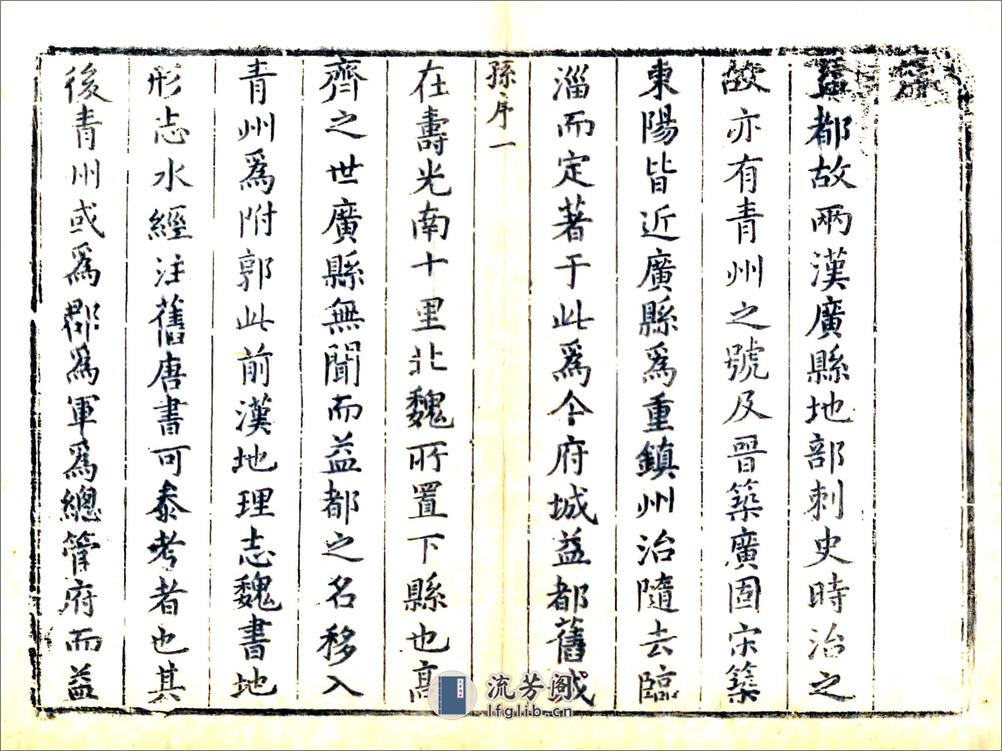 益都故兩漢廣縣地部刺史時治之
故亦有青州之號及晉築廣固宋築
東陽皆近廣縣爲重鎮州治隨去臨
淄而定著于此爲今府城益都舊城
孫序一
在壽光南十里北魏所置下縣也高
齊之世廣縣無聞而益都之名移入
青州爲附郭此前漢地理志魏書地
形志水經注舊唐書可叅考者也其
後青州或爲郡爲軍爲總管府而益
流芳阁
lfglib.cn